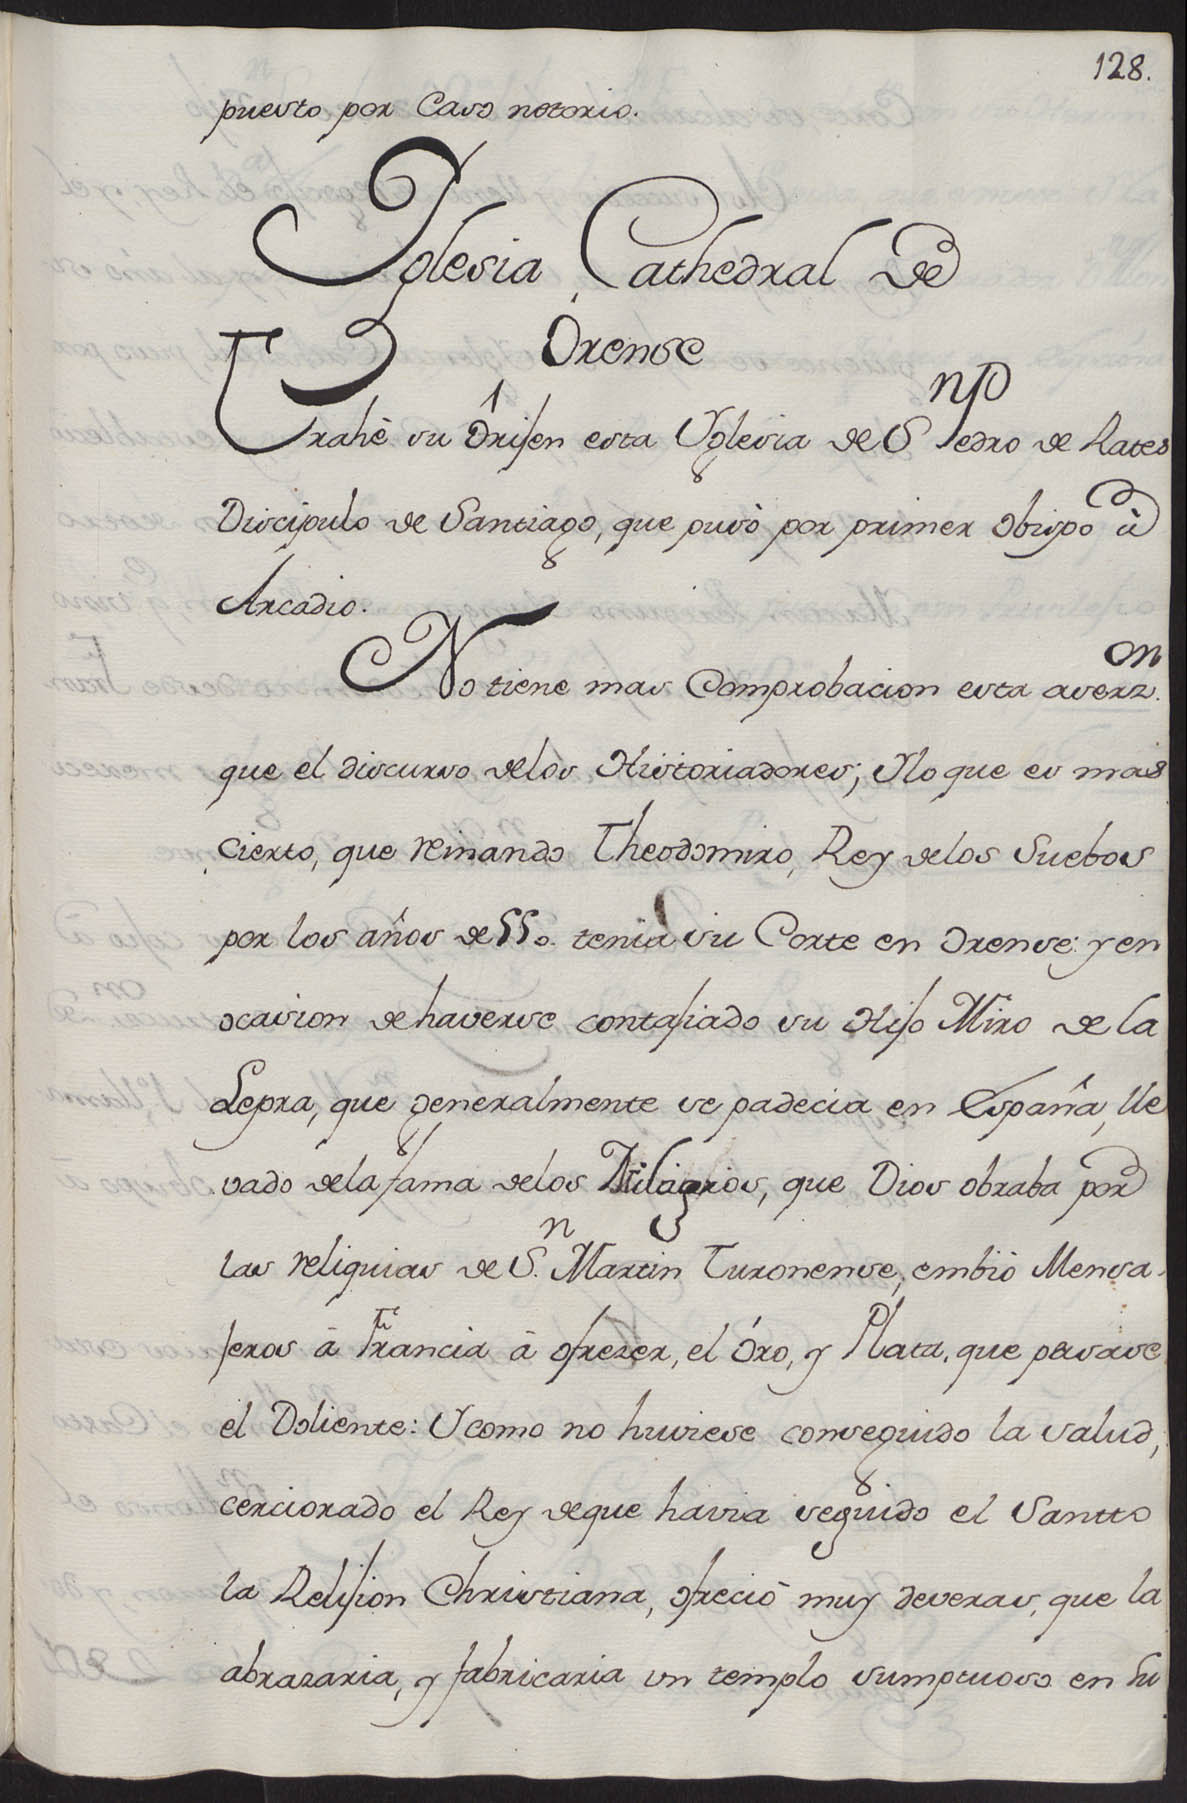 128.
puesto por Caso notorio.
Yglesia Cathedral de
Orense
Trahe su Orijen esta Yglesia de Sn Pedro de Rates
Discipulo de Santiago, que pusò por primer Obispo à
Arcadio.
No tiene mas Comprobacion esta aserz.on
que el discurso delos Historiadores; Y lo que es mas
cierto, que reinando Theodomiro, Rey delos Suebos
por los años de 550. tenia su Corte en Orense: y en
ocasion de haverse contajiado su Hijo Miro de la
Lepra, que generalmente se padecia en España, lle
vado dela fama delos Milagros, que Dios obraba por
las reliquias de S.n Martin Turonense, embiò Mensa-
jeros â Francia â ofrezer, el Óro, y Plata, que pesase
el Doliente: Y como no huviese conseguido la salud,
cerciorado el Rey deque havia seguido el Santto
la Relijion Christiana, ofreciò muy deveras, que la
abrazaria, y fabricaria un templo sumptuoso en su